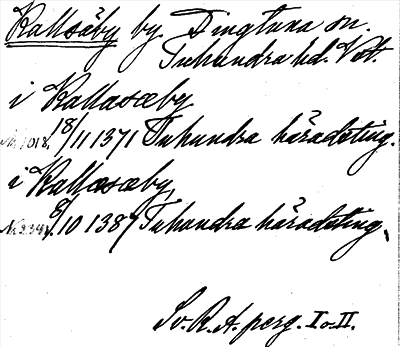 Kallsäby by Dingtuna sn.
Tuhundra hd. Vstl.
i Kallasæby
Nr 1018, 18/11 1371 Tuhundra häradsting.
i Kallæsæby
8/10 1387 Tuhundra häradsting.
Sv. R. A. perg. I o II.